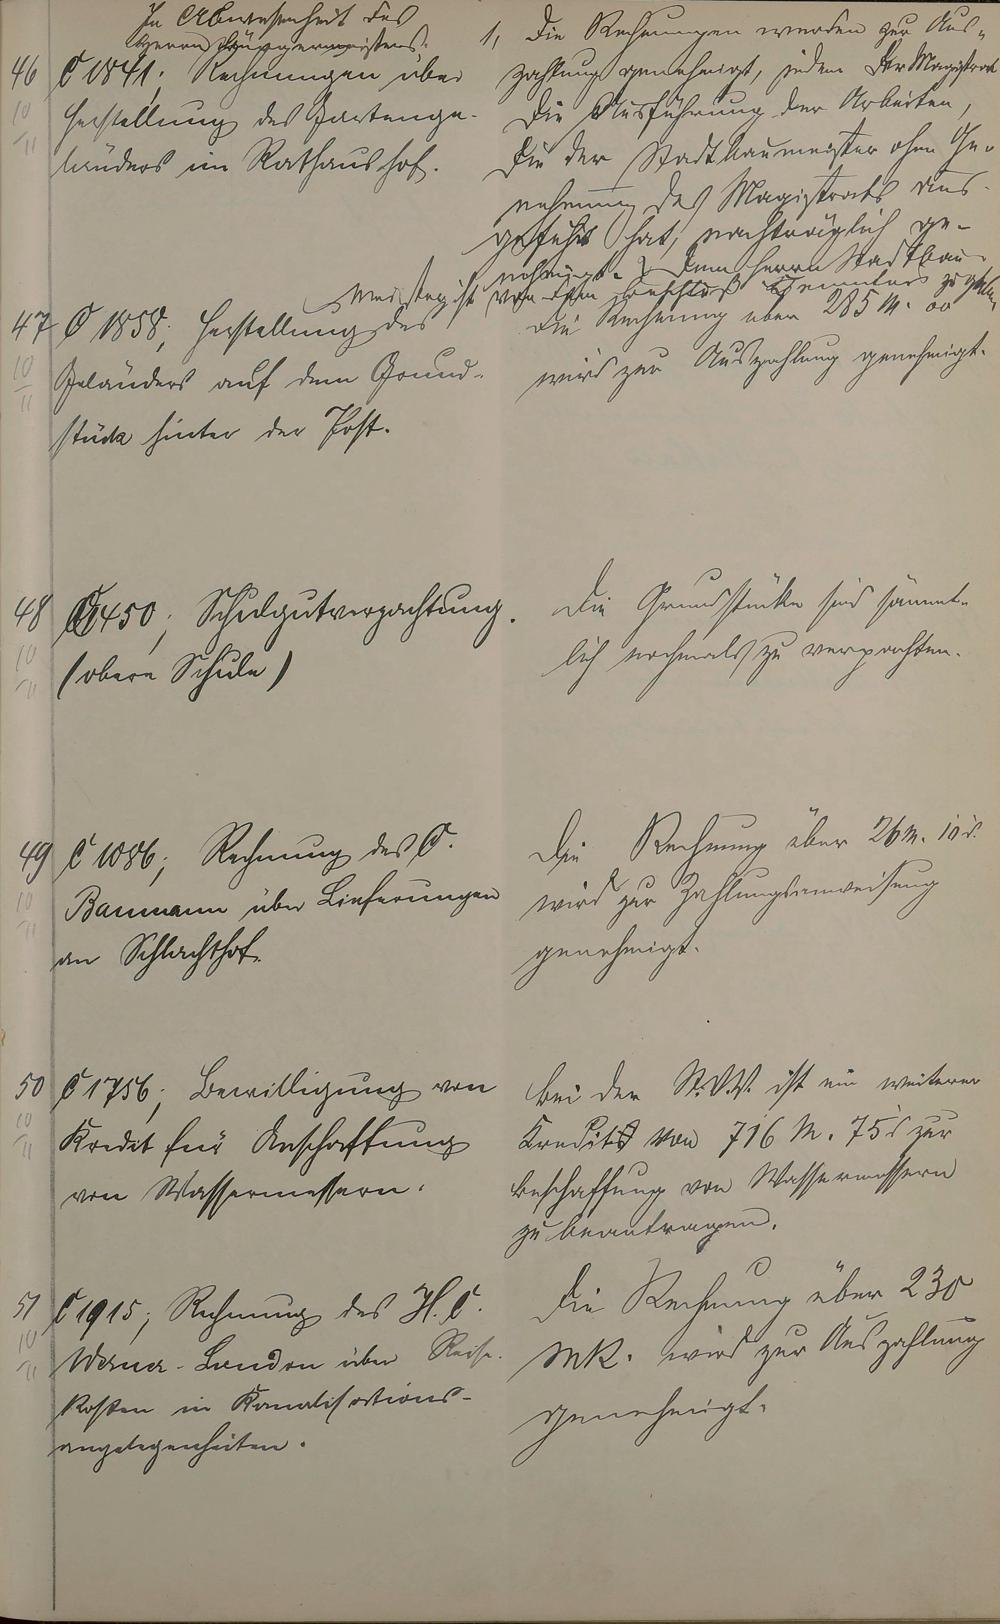 In Abwesenheit des
Herrn Bürgermeisters.
46 C 1841; Rechnungen über
10
11
Herstellung des Gartenge-
länders im Rathaushof.
1, Die Rechnungen werden zur Aus-
zahlung genehmigt, indem der Magistrat
die Ausführung der Arbeiten,
die der Stadtbaumeister ohne Ge-
nehmig. des Magistrats aus-
geführt hat, nachträglich ge-
nehmigt. 2, Dem Herrn Stadtbau-
meister ist von dem Beschluß Kenntnis zu geben
47 C 1858; Herstellung des
10
11
Geländers auf dem Grund-
stück hinter der Post.
Die Rechnung über 285 M. 00
wird zur Auszahlung genehmigt.
48 C 450; Schulgutverpachtung.
10
11
(obere Schule)
Die Grundstücke sind sämmt-
lich nochmals zu verpachten.
49 C 1086; Rechnung des C.
10
11
Baumann über Lieferungen
an Schlachthof.
Die Rechnung über 26 M. 10 d.
wird zur Zahlungsanweisung
genehmigt.
50 C 1756; Bewilligung von
10
11
Kredit für Anschaffung
von Wassermessern.
Bei der St.V.V. ist ein weiterer
Kredit von 716 M. 75 d zur
Beschaffung von Wassermessern
zu beantragen.
51 C 1915; Rechnung des H. C.
10
11
Werner-London über Reise-
kosten in Kanalisations-
angelegenheiten.
Die Rechnung über 230
MK. wird zur Auszahlung
genehmigt.